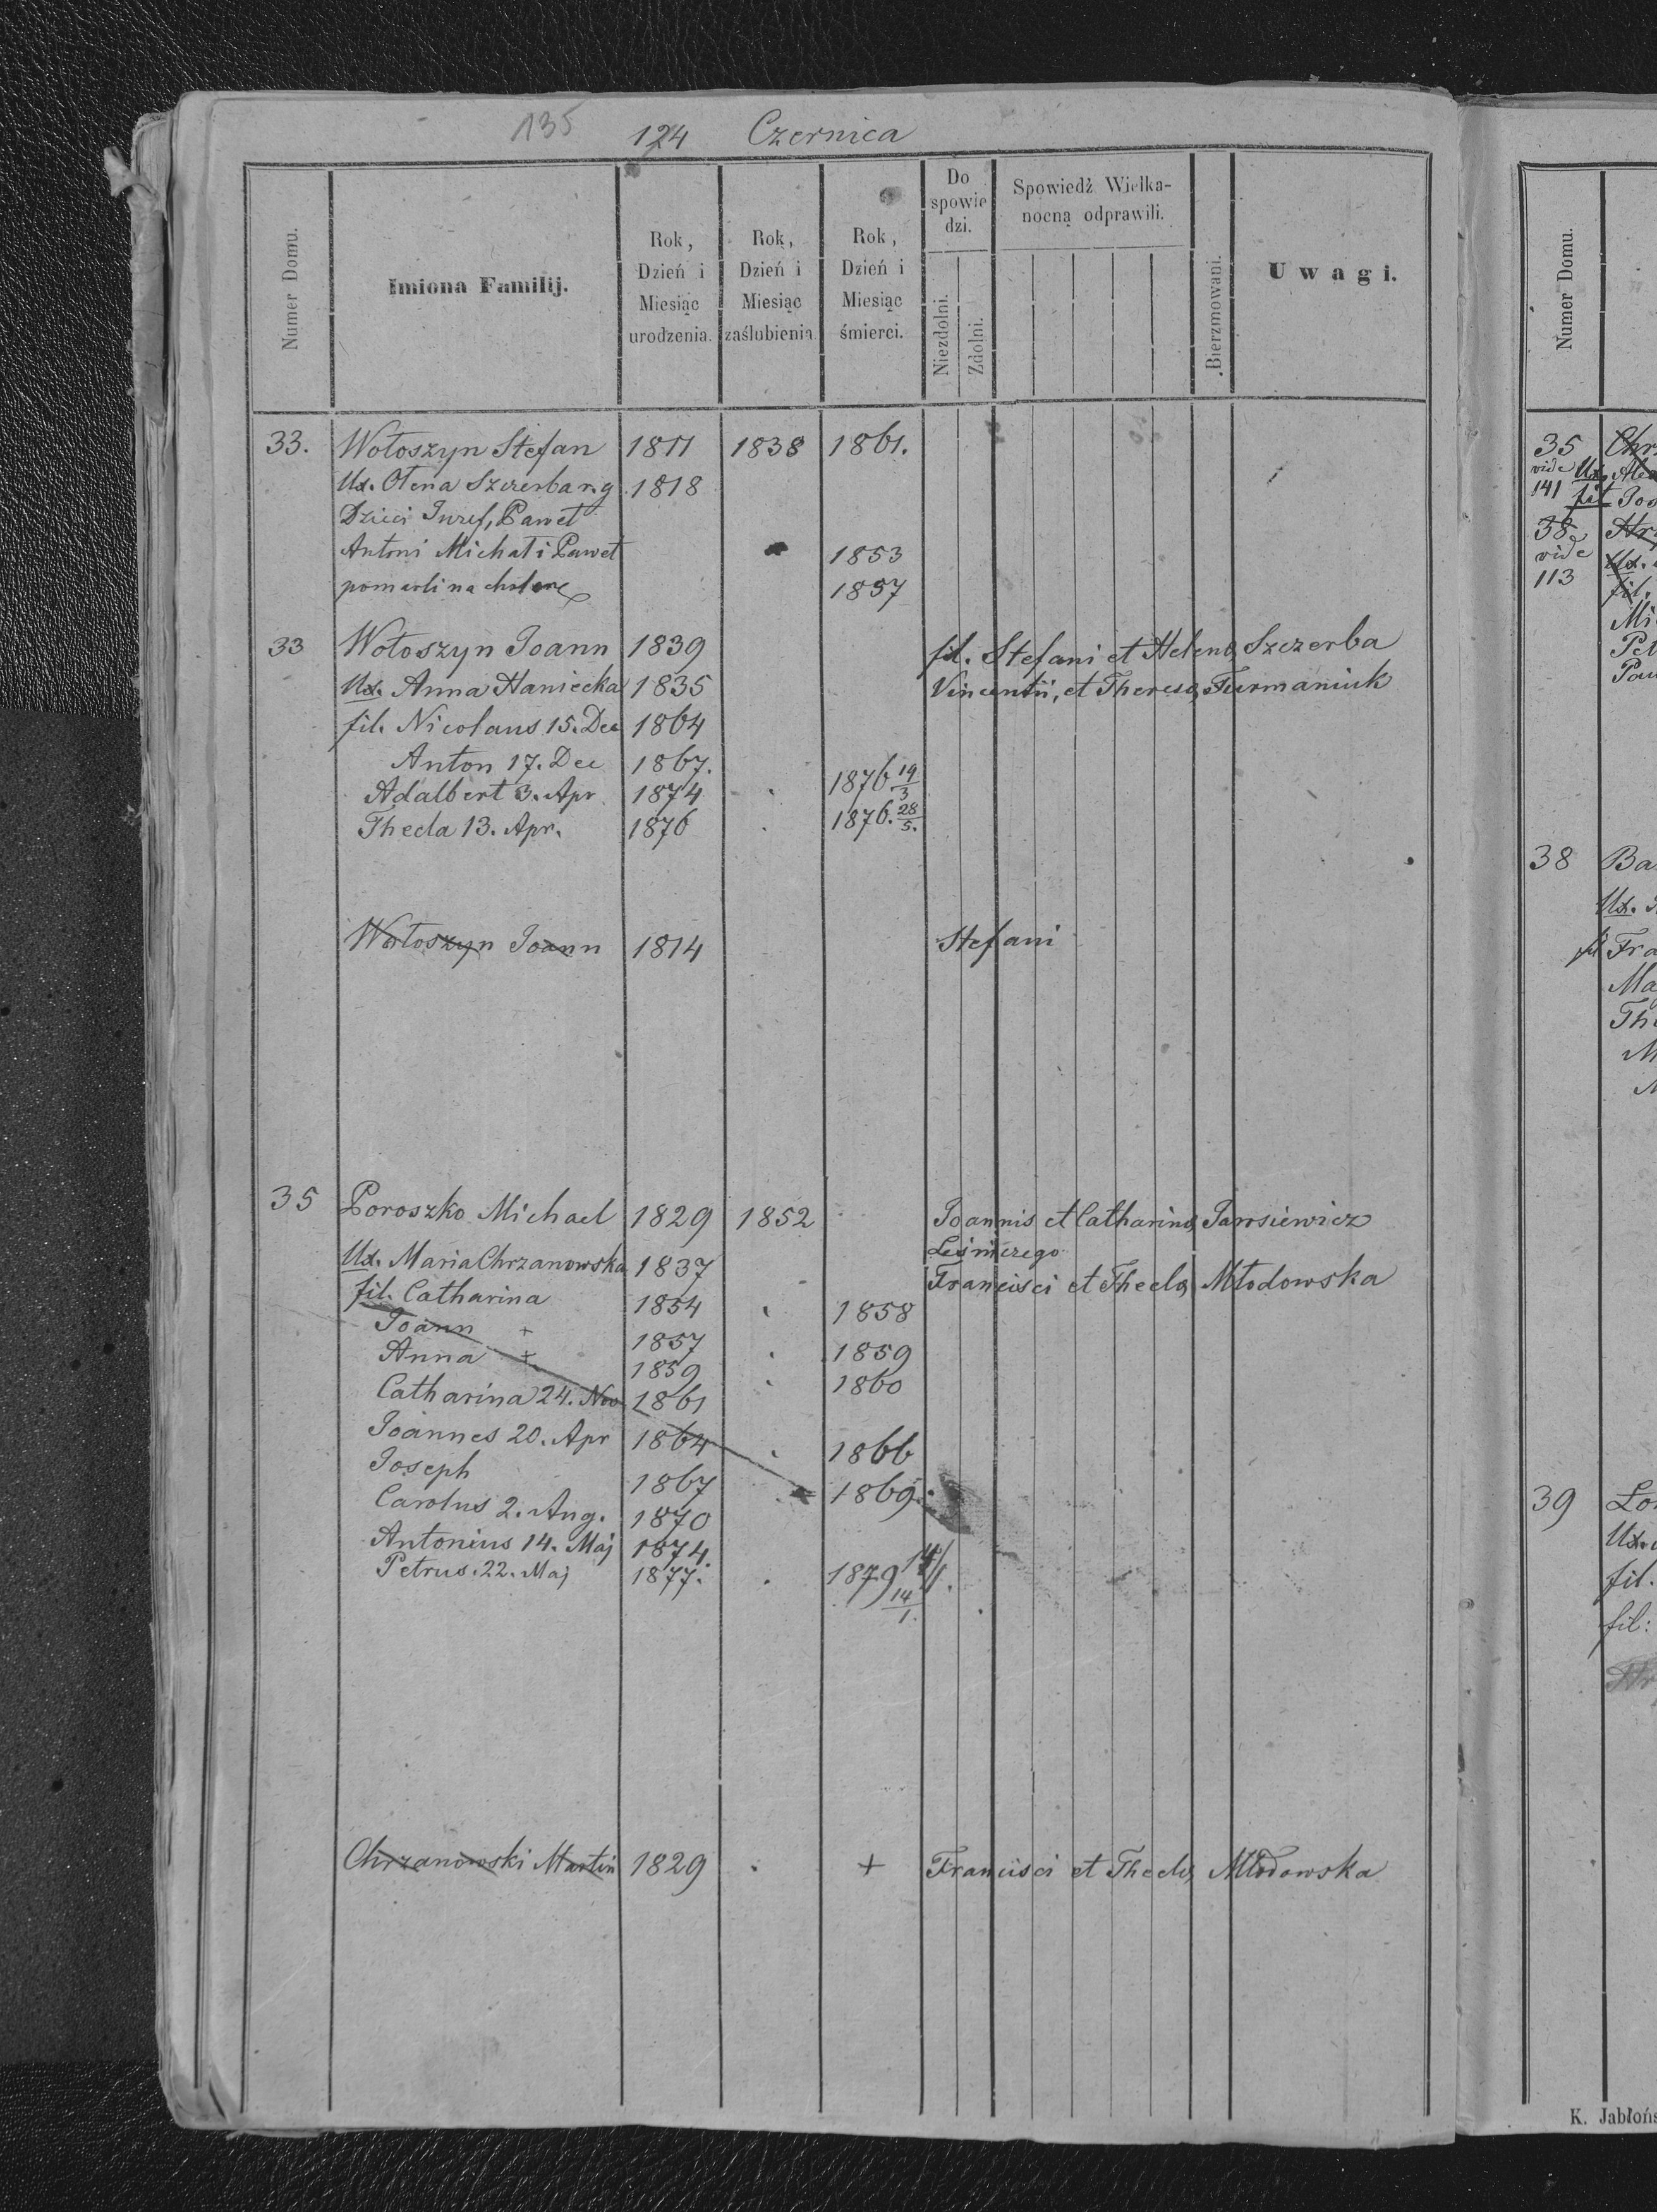 135 124 Czernica
Numer Domu.
Imiona Familij.
Rok, Dzień i Miesiąc urodzenia.
Rok, Dzień i Miesiąc zaślubienia
Rok, Dzień i Miesiąc śmierci.
Do spowiedzi.
Niezdolni.
Zdolni.
Spowiedź Wielkanocną odprawili.
Bierzmowani.
Uwagi.
33. Wołoszyn Stefan 1811 1838 1861.
Ux. Ołena Szczerba r.g 1818
Dzieci Juzef, Paweł
Antoni Michał i Paweł 1853
pomarli na cholerę 1857
33 Wołoszyn Joann 1839 fil. Stefani et Helenæ Szczerba
Ux. Anna Haniecka 1835 Vincentii, et Theresæ Furmaniuk
fil. Nicolaus 15. Dec 1864
Anton 17. Dec 1867.
Adalbert 3. Apr 1874 1876 19/3
Thecla 13. Apr. 1876 1876. 28/5.
Wołoszyn Joann 1814 Stefani
35 Poroszko Michael 1829 1852 Joannis et Catharinæ Jarosiewicz
Leśniczego
Ux. Maria Chrzanowska 1837 Francisci et Theclæ Młodowska
fil. Catharina 1854 1858
Joann + 1857 1859
Anna + 1859 1860
Catharina 24. Nov 1861
Joannes 20. Apr 1864 1866
Joseph 1867 1869.
Carolus 2. Aug. 1870
Antonius 14. Maj 1874.
Petrus. 22. Maj 1877. 1879 14/1.
14/1.
Chrzanowski Martin 1829 + Francisci et Theclæ Młodowska
Numer Domu.
35
vide Ux.
141 fil
38
vide Ux.
113 fil.
38
Ux.
fil
39
Ux.
fil.
fil:
K. Jabłońs